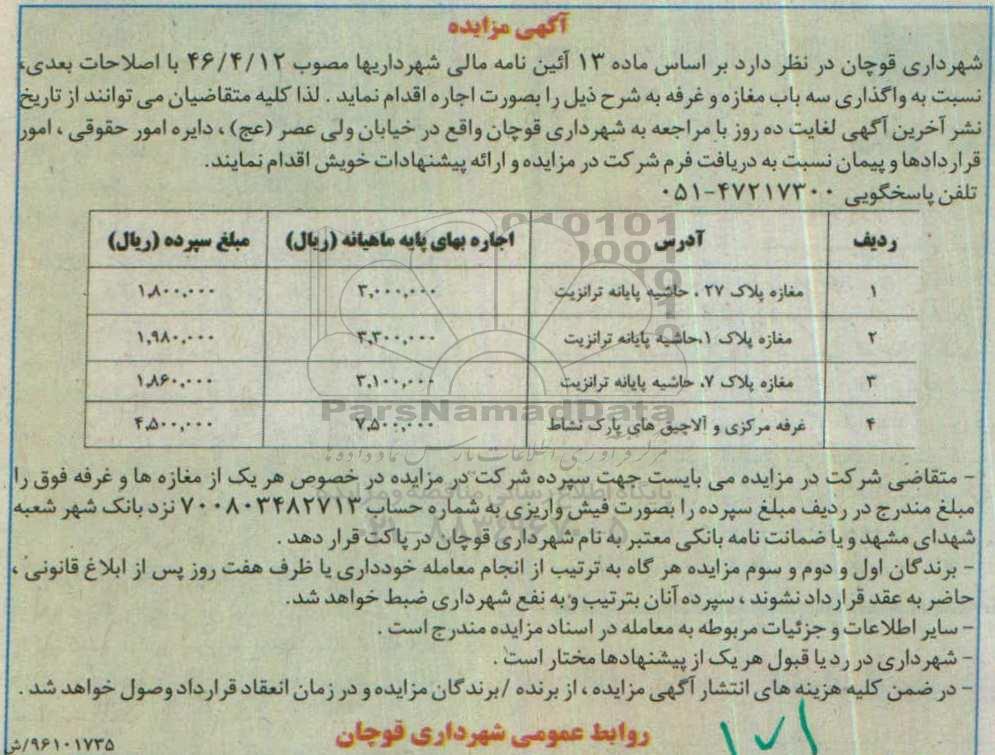 آگهی مزایده
شهرداری قوچان در نظر دارد بر اساس ماده ۱۳ آئین نامه مالی شهرداریها مصوب ۴۶/۴/۱۲ با اصلاحات بعدی،
نسبت به واگذاری سه باب مغازه و غرفه به شرح ذیل را بصورت اجاره اقدام نماید . لذا کلیه متقاضیان می توانند از تاریخ
نشر آخرین آگهی لغایت ده روز با مراجعه به شهرداری قوچان واقع در خیابان ولی عصر (عج) ، دایره امور حقوقی ، امور
قراردادها و پیمان نسبت به دریافت فرم شرکت در مزایده و ارائه پیشنهادات خویش اقدام نمایند.
تلفن پاسخگویی ۴۷۲۱۷۳۰۰-۰۵۱
ردیف آدرس اجاره بهای پایه ماهیانه (ریال) مبلغ سپرده (ریال)
۱ مغازه پلاک ۲۷ ، حاشیه پایانه ترانزیت ۳,۰۰۰,۰۰۰ ۱,۸۰۰,۰۰۰
۲ مغازه پلاک ۱،حاشیه پایانه ترانزیت ۳,۳۰۰,۰۰۰ ۱,۹۸۰,۰۰۰
۳ مغازه پلاک ۷، حاشیه پایانه ترانزیت ۳,۱۰۰,۰۰۰ ۱,۸۶۰,۰۰۰
۴ غرفه مرکزی و آلاچیق های پارک نشاط ۷,۵۰۰,۰۰۰ ۴,۵۰۰,۰۰۰
ParsNamadData
- متقاضی شرکت در مزایده می بایست جهت سپرده شرکت در مزایده در خصوص هر یک از مغازه ها و غرفه فوق را
مبلغ مندرج در ردیف مبلغ سپرده را بصورت فیش واریزی به شماره حساب ۷۰۰۸۰۳۴۸۲۷۱۳ نزد بانک شهر شعبه
شهدای مشهد و یا ضمانت نامه بانکی معتبر به نام شهرداری قوچان در پاکت قرار دهد .
- برندگان اول و دوم و سوم مزایده هر گاه به ترتیب از انجام معامله خودداری یا ظرف هفت روز پس از ابلاغ قانونی ،
حاضر به عقد قرارداد نشوند ، سپرده آنان بترتیب و به نفع شهرداری ضبط خواهد شد.
- سایر اطلاعات و جزئیات مربوطه به معامله در اسناد مزایده مندرج است .
- شهرداری در رد یا قبول هر یک از پیشنهادها مختار است .
- در ضمن کلیه هزینه های انتشار آگهی مزایده ، از برنده /برندگان مزایده و در زمان انعقاد قرارداد وصول خواهد شد .
روابط عمومی شهرداری قوچان
۹۶۱۰۱۷۳۵/ش